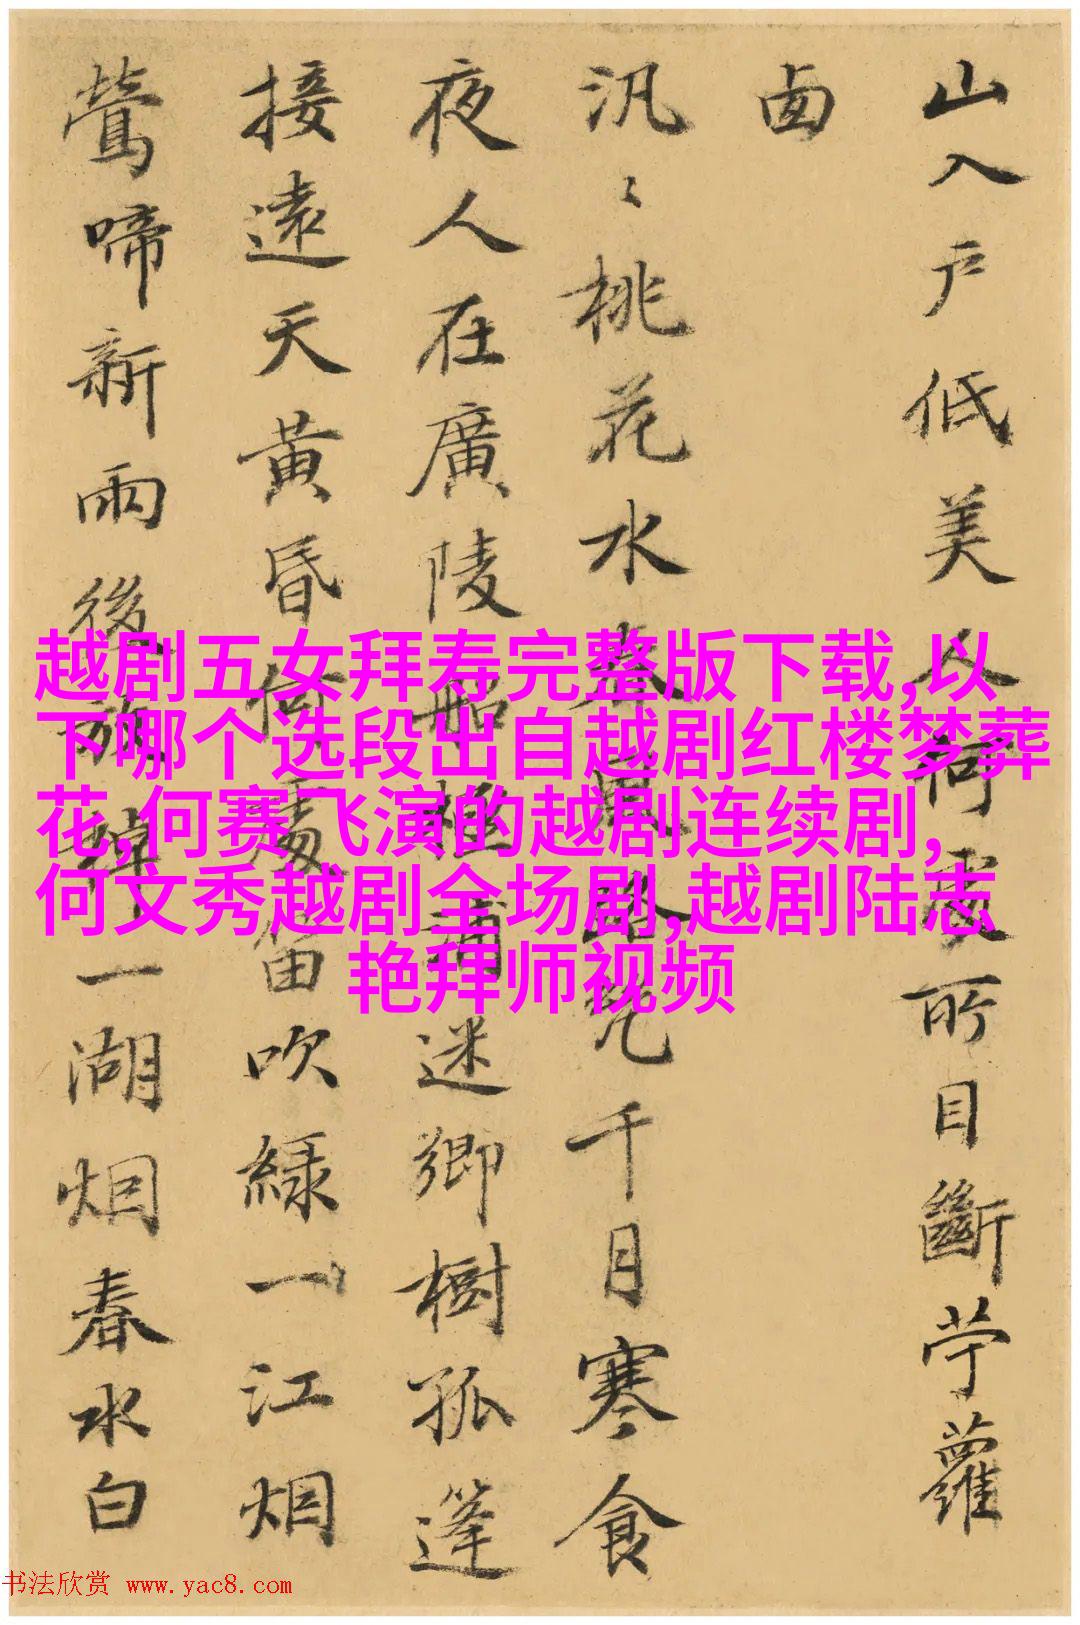 山入户低美人何處所目斷苧蘿
汎〻桃花水春風路幾千月寒食
夜人在廣陵船極浦迷鄉樹孤篷
接遠天黃昏何處笛吹緑一江烟
鶯啼新雨後旅棹一湖烟春水白
越剧五女拜寿完整版下载,以
下哪个选段出自越剧红楼梦葬
花,何赛飞演的越剧连续剧,
何文秀越剧全场剧,越剧陆志
艳拜师视频
书法欣赏 www.yac8.com